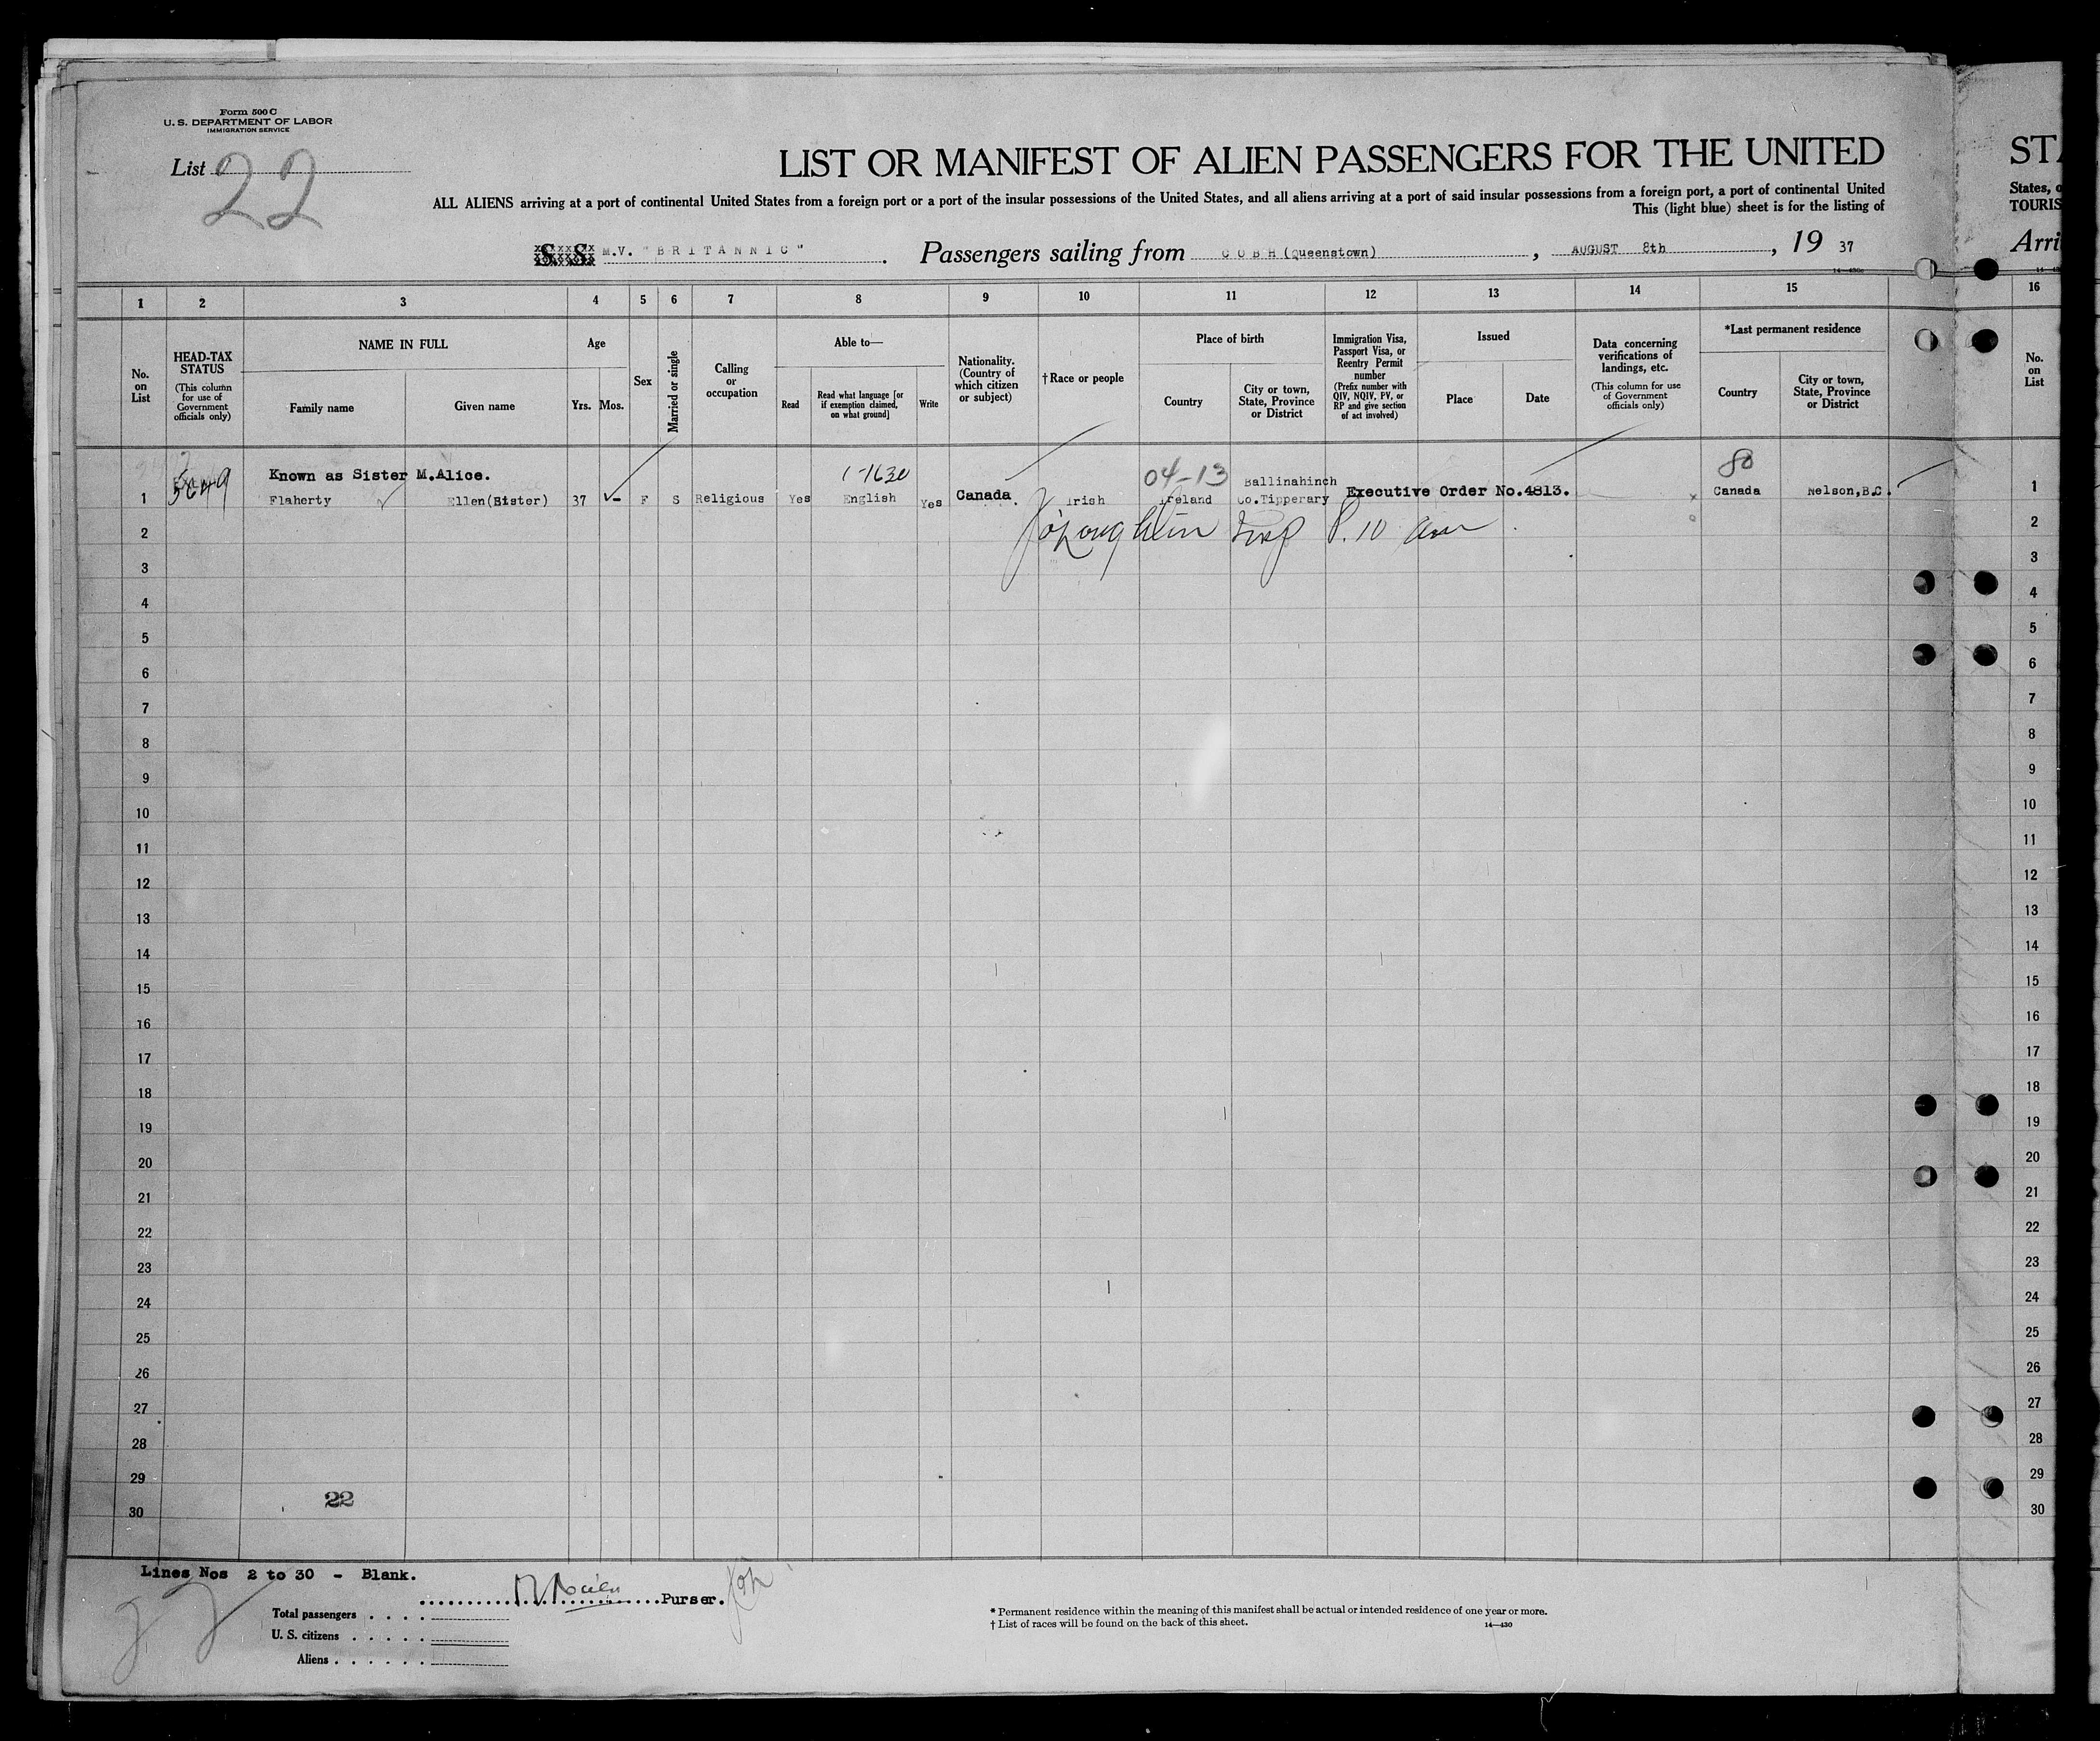 Form 500 C
U. S. DEPARTMENT OF LABOR
IMMIGRATION SERVICE
List 22
LIST OR MANIFEST OF ALIEN PASSENGERS FOR THE UNITED
ALL ALIENS arriving at a port of continental United States from a foreign port or a port of the insular possessions of the United States, and all aliens arriving at a port of said insular possessions from a foreign port, a port of continental United
This (light blue) sheet is for the listing of
S. S. M.V. "BRITANNIC". Passengers sailing from COBH (Queenstown), AUGUST 8th, 19 37
STA
States, o
TOURIS
Arri
1 2 3 4 5 6 7 8 9 10 11 12 13 14 15 16
No. on List
HEAD-TAX STATUS
(This column for use of Government officials only)
NAME IN FULL
Family name
Given name
Age
Yrs. Mos.
Sex
Married or single
Calling or occupation
Able to—
Read
Read what language [or if exemption claimed, on what ground]
Write
Nationality. (Country of which citizen or subject)
† Race or people
Place of birth
Country
City or town, State, Province or District
Immigration Visa, Passport Visa, or Reentry Permit number
(Prefix number with QIV, NQIV, PV, or RP and give section of act involved)
Issued
Place
Date
Data concerning verifications of landings, etc.
(This column for use of Government officials only)
*Last permanent residence
Country
City or town, State, Province or District
No. on List
Known as Sister M.Alice. 04-13 Ballinahinch 80
1 Flaherty Ellen(Sister) 37 - F S Religious Yes English Yes Canada. Irish Ireland Co.Tipperary Executive Order No.4813. x Canada Nelson,B.C. 1
2 2
3 3
4 4
5 5
6 6
7 7
8 8
9 9
10 10
11 11
12 12
13 13
14 14
15 15
16 16
17 17
18 18
19 19
20 20
21 21
22 22
23 23
24 24
25 25
26 26
27 27
28 28
29 29
22
30 30
Lines Nos 2 to 30 - Blank.
Purser.
Total passengers
U. S. citizens
Aliens
* Permanent residence within the meaning of this manifest shall be actual or intended residence of one year or more.
† List of races will be found on the back of this sheet. 14—430